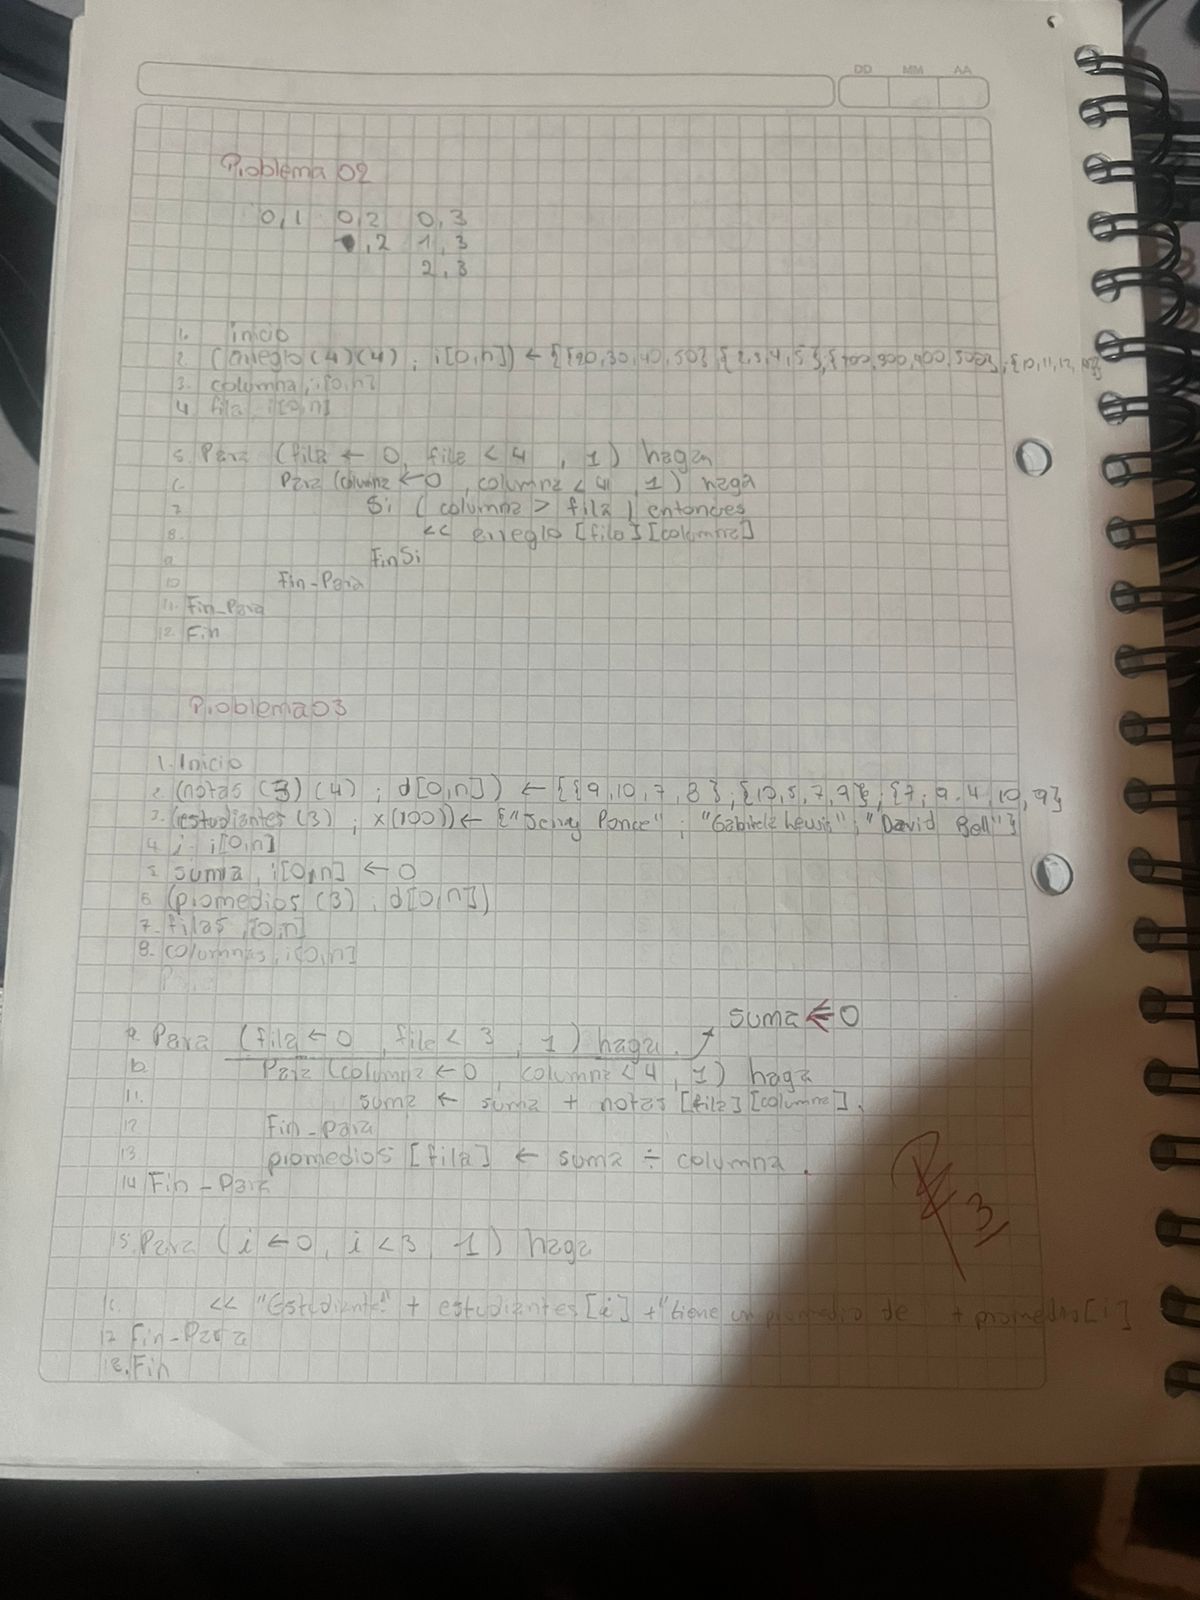 DD MM AA
Problema 02
0,1 0,2 0,3
,2 1,3
2,3
1. inicio
2. (arreglo (4)(4) ; i[0,n]) ← {{20,30,40,50},{2,3,4,5},{ ,300,400,500},{10,11,12,
3. columna, i[0,n]
4. fila, i[0,n]
5. Para (fila ← 0, fila < 4 , 1) haga
6. Para (columna ← 0, columna < 4, 1) haga
7. Si (columna > fila) entonces
8. << arreglo [fila][columna]
9. FinSi
10 Fin-Para
11. Fin_Para
12. Fin
Problema 03
1. Inicio
2. (notas (3) (4) ; d[0,n]) ← {{9,10,7,8};{10,5,7,9};{7,9.4,10,9}
3. (estudiantes (3) ; x(100)) ← {" Ponce" ; " " ; "David Bell"}
4. i. i[0,n]
5. suma, i[0,n] ← 0
6 (promedios (3) ; d[0,n])
7. filas, [0,n]
8. columnas, i[0,n]
suma ← 0
9. Para (fila ← 0 , fila < 3 , 1) haga.
10. Para (columna ← 0, columna < 4, 1) haga
11. suma ← suma + notas [fila][columna].
12 Fin_Para
13 promedios [fila] ← suma ÷ columna .
14 Fin-Para
15. Para (i ← 0, i < 3, 1) haga
16. << "Estudiante" + estudiantes[i] + "tiene un promedio de + promedio[i]
17 Fin-Para
18. Fin
3